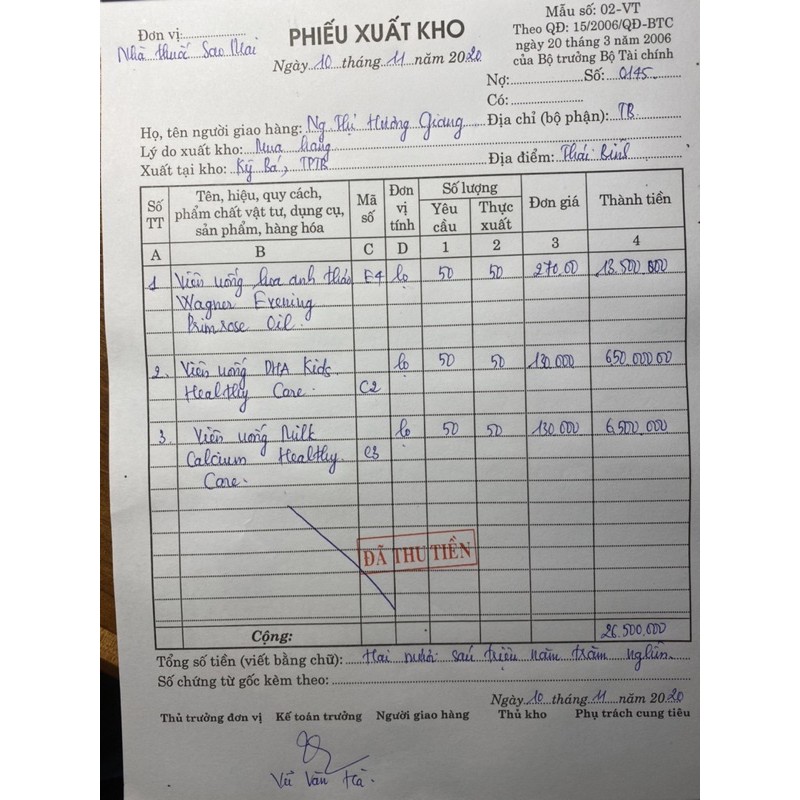 Đơn vị:
Nhà thuốc Sao Mai
PHIẾU XUẤT KHO
Ngày 10 tháng 11 năm 2020
Mẫu số: 02-VT
Theo QĐ: 15/2006/QĐ-BTC
ngày 20 tháng 3 năm 2006
của Bộ trưởng Bộ Tài chính
Nợ: Số: 0145
Có:
Họ, tên người giao hàng: Ng Thị Hương Giang Địa chỉ (bộ phận): TB
Lý do xuất kho: Mua hàng
Xuất tại kho: Kỳ Bá, TPTB Địa điểm: Thái Bình
Số TT Tên, hiệu, quy cách, phẩm chất vật tư, dụng cụ, sản phẩm, hàng hóa Mã số Đơn vị tính Số lượng Yêu cầu Thực xuất Đơn giá Thành tiền
A B C D 1 2 3 4
1 Viên uống hoa anh thảo E4 lọ 50 50 270.00 13.500.000
Wagner Evening
Primrose Oil.
2. Viên uống DHA Kids lọ 50 50 130.000 650.000.00
Healthy Care. C2
3. Viên uống Milk lọ 50 50 130.000 6.500.000
Calcium Healthy C3
Care.
ĐÃ THU TIỀN
Cộng: 26.500.000
Tổng số tiền (viết bằng chữ): Hai mươi sáu triệu năm trăm nghìn
Số chứng từ gốc kèm theo:
Ngày 10 tháng 11 năm 2020
Thủ trưởng đơn vị Kế toán trưởng Người giao hàng Thủ kho Phụ trách cung tiêu
Vũ Văn Hà.